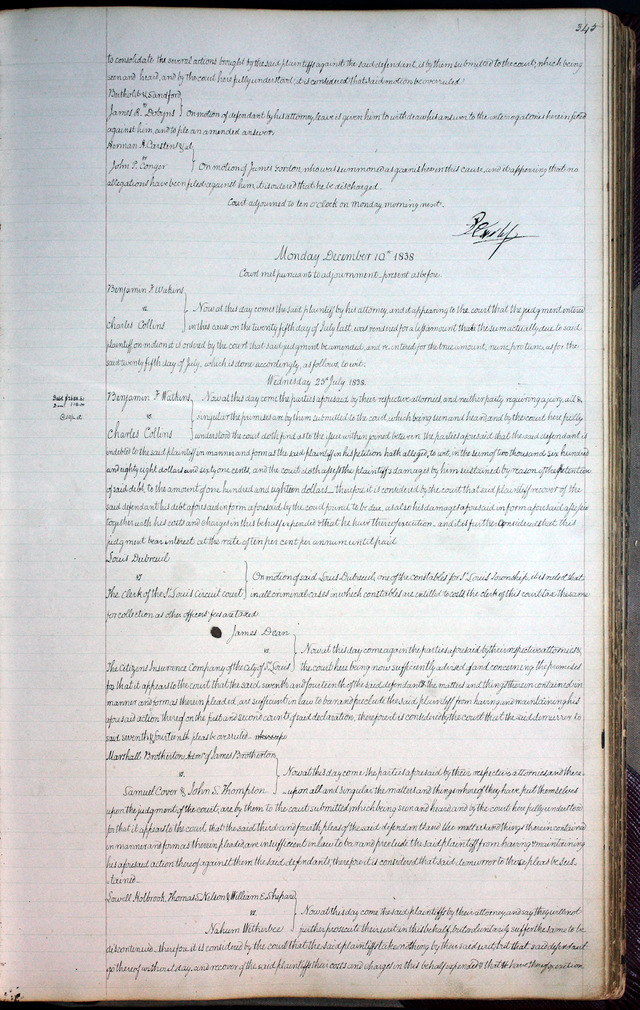 345
to consolidate the several actions bought by the said plaintiffs against the said defendant, is by them submitted to the court; which being
seen and heard, and by the court here fully understood, it is considered that said motion be overruled
Berthold & Sandford
James R. Dobyns } On motion of defendant by his attorney, leave is given him to withdraw his answer to the interrogatories herein filed
against him, and to file an amended answer.
Herman H. Carstens & al
John P. Conger } On motion of James Gordon, who was summoned as garnishee in this cause, and it appearing that no
allegations have been filed against him, it is ordered that he be discharged.
Court adjourned to ten o'clock on monday morning next.
Monday December 10th 1838
Court met pursuant to adjournment, present as before.
Benjamin F. Watkins
vs } Now at this day comes the said plaintiff by his attorney, and it appearing to the court that the judgment entered
Charles Collins in this cause on the twenty fifth day of July last, was rendered for a less amount than the sum actually due to said
plaintiff, on motion it is ordered by the court that said judgment be amended, and re-entered for the true amount, nunc pro tunc, as for the
said twenty fifth day of July, which is done accordingly, as follows, to wit:
Wednesday 25th July 1838.
Benjamin F. Watkins Now at this day come the parties aforesaid by their respective attornies and neither party requiring a jury, all &
vs } singular the premises are by them submitted to the court, which being seen and heard and by the court here fully
Charles Collins understood the court doth find as to the issue within joined between the parties aforesaid that the said defendant is
indebted to the said plaintiff in manner and form as the said plaintiff in his petition hath alleged, to wit, in the sum of two thousand six hundred
and eighty eight dollars and sixty one cents, and the court doth assess the plaintiff's damages by him sustained by reason of the detention
of said debt, to the amount of one hundred and eighteen dollars_ therefore it is considered by the court that said plaintiff recover of the
said defendant his debt aforesaid in form aforesaid by the court found to be due, as also his damages aforesaid in form aforesaid assessed
together with his costs and charges in this behalf expended & that he have thereof execution_ and it is further considered that this
judgment bear interest at the rate of ten per cent per annum until paid.
Louis Dubreuil
vs } On motion of said Louis Dubreuil, one of the constables for St. Louis Township, it is ruled that
The Clerk of the St. Louis Circuit court in all criminal cases in which constables are entitled to costs the clerk of this court tax the same
for collection as other officers' fees are taxed
James Dean
vs } Now at this day come again the parties aforesaid by their respective attornies &
The Citizens Insurance Company of the City of St. Louis the court here being now sufficiently advised of and concerning the premises
for that it appears to the court that the said seventh and fourteenth of the said defendant & the matters and things therein contained in
manner and form as therein pleaded, are sufficient in law to bar and preclude the said plaintiff from having and maintaining his
aforesaid action thereof on the first and second counts of said declaration, therefore it is considered by the court that the said demurrer to
said seventh & fourteenth pleas be overruled_
Marshall Brotherton, adm'r of James Brotherton
vs. } Now at this day come the parties aforesaid by their respective attornies and there-
Samuel Cover & John S. Thompson upon all and singular the matters and things whereof they have put themselves
upon the judgment of the court, are by them to the court submitted, which being seen and heard, and by the court here fully understood
for that it appears to the court that the said third and fourth pleas of the said defendants and the matters and things therein contained
in manner and form as therein pleaded, are insufficient in law to bar and preclude the said plaintiff from having & maintaining
his aforesaid action thereof against them the said defendants; therefore it is considered that said demurrer to these pleas be sus-
tained_
Lowell Holbrook, Thomas S. Nelson & William E. Shepard
vs. } Now at this day come the said plaintiffs by their attorney and say they will not
Nahum Witherbee further prosecute their suit in this behalf, but voluntarily suffer the same to be
discontinued_ therefore it is considered by the court that the said plaintiffs take nothing by their said writ, but that said defendant
go thereof without day, and recover of the said plaintiffs their costs and charges in this behalf expended & that he have thereof execution.